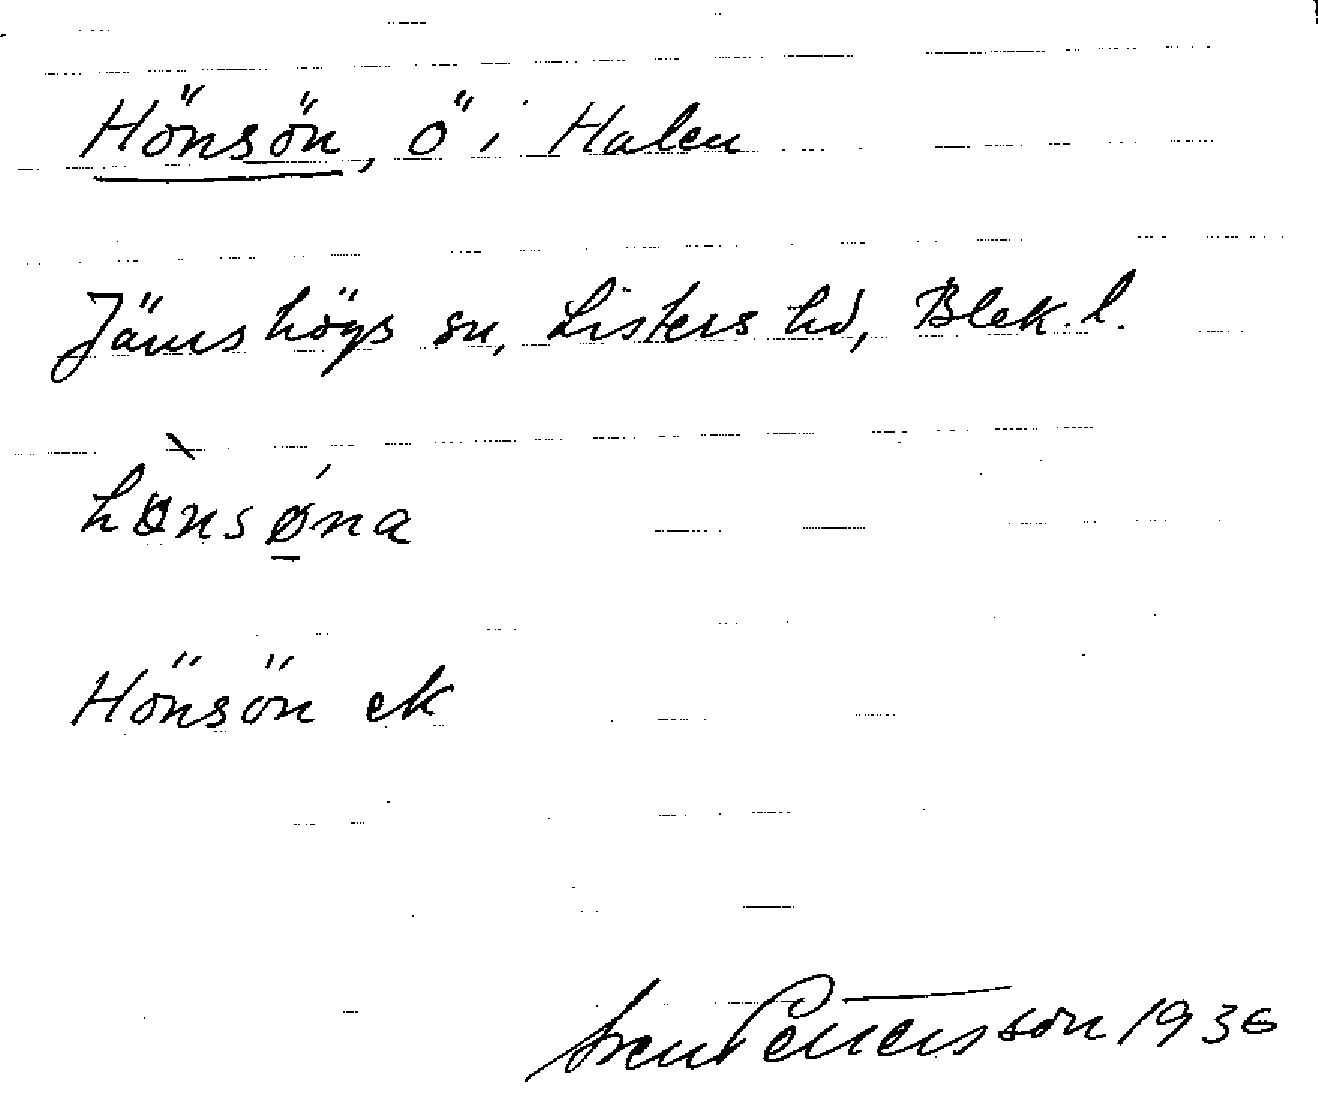 Hönsön, ö i Halen
Jämshögs sn, Listers hd, Blek. l.
hø̀nsǿ̱na
Hönsön ek
Sven Pettersson 1936